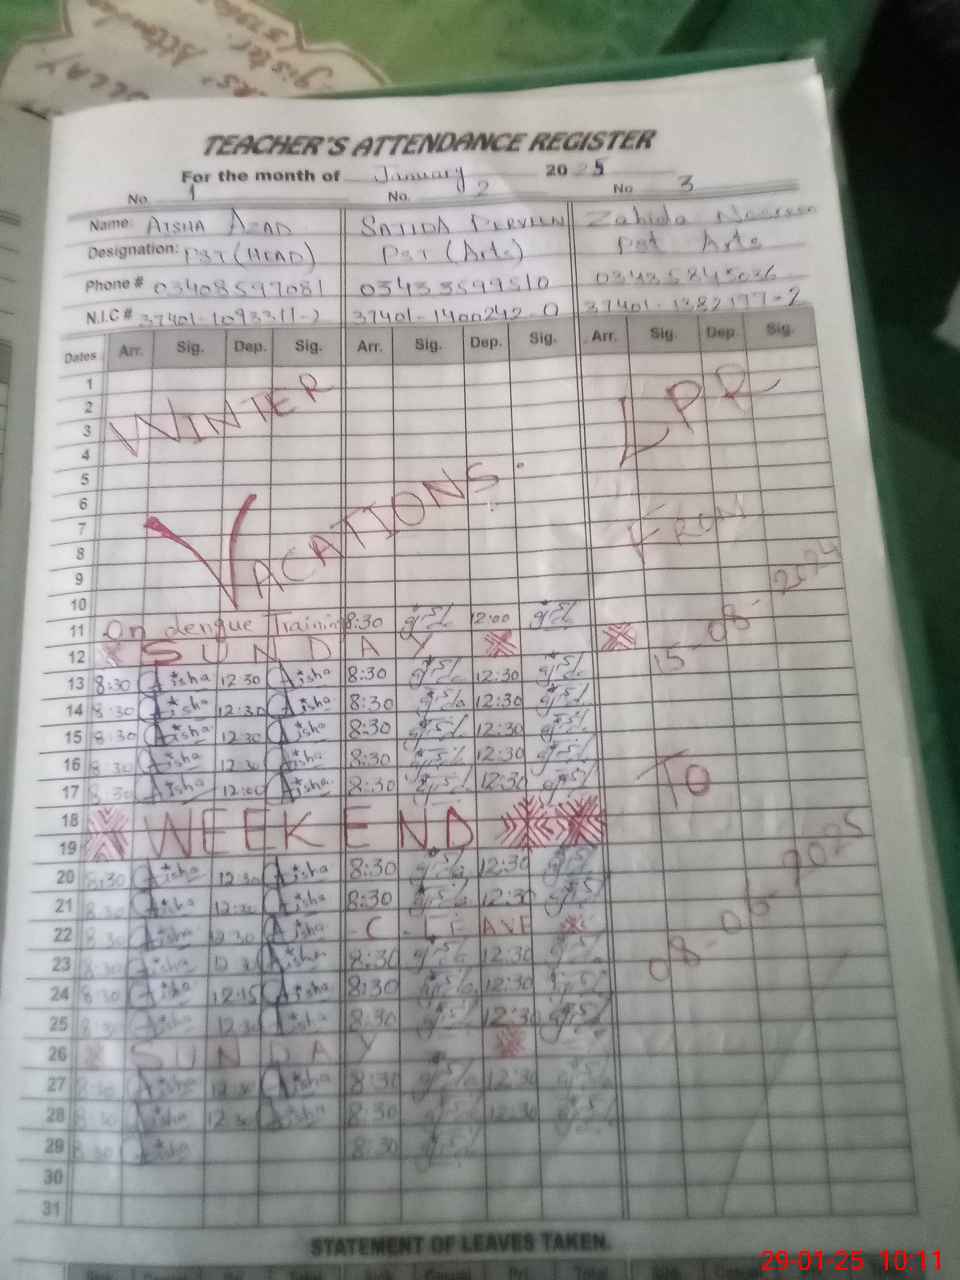 TEACHER'S ATTENDANCE REGISTER
For the month of January 2025
No. 1 No. 2 No 3
Name: AISHA AZAD SAJIDA PERVEEN Zahida
Designation: PST (HEAD) PST (Arts) PST Arts
Phone # 03408597081 03433599510 03435845036
N.I.C # 37401-1093311-2 37401-1400242-0 37401-1382197-2
Dates Arr. Sig. Dep. Sig. Arr. Sig. Dep. Sig. Arr. Sig. Dep. Sig.
1
2
3
4
5
6
7
8
9
10
WINTER
VACATIONS.
LPR
FROM
15-08-2024
TO
08-06-2025
11 On dengue Training 8:30 12:00
12 SUNDAY
13 8:30 Aisha 12:30 Aisha 8:30 12:30
14 8:30 Aisha 12:30 Aisha 8:30 12:30
15 8:30 Aisha 12:30 Aisha 8:30 12:30
16 8:30 Aisha 12:30 Aisha 8:30 12:30
17 8:30 Aisha 12:00 Aisha 8:30 12:30
18
19
WEEKEND
20 8:30 Aisha 12:30 Aisha 8:30 12:30
21 8:30 Aisha 12:30 Aisha 8:30 12:30
22 8:30 Aisha 12:30 Aisha C. LEAVE
23 8:30 Aisha Aisha 8:30 12:30
24 8:30 Aisha 12:15 Aisha 8:30 12:30
25 8:30 Aisha 12:30 Aisha 8:30 12:30
26 SUNDAY
27 8:30 Aisha 12:30 Aisha 8:30 12:30
28 8:30 Aisha 12:30 Aisha 8:30 12:30
29 8:30 Aisha 8:30
30
31
STATEMENT OF LEAVES TAKEN.
29-01-25 10:11